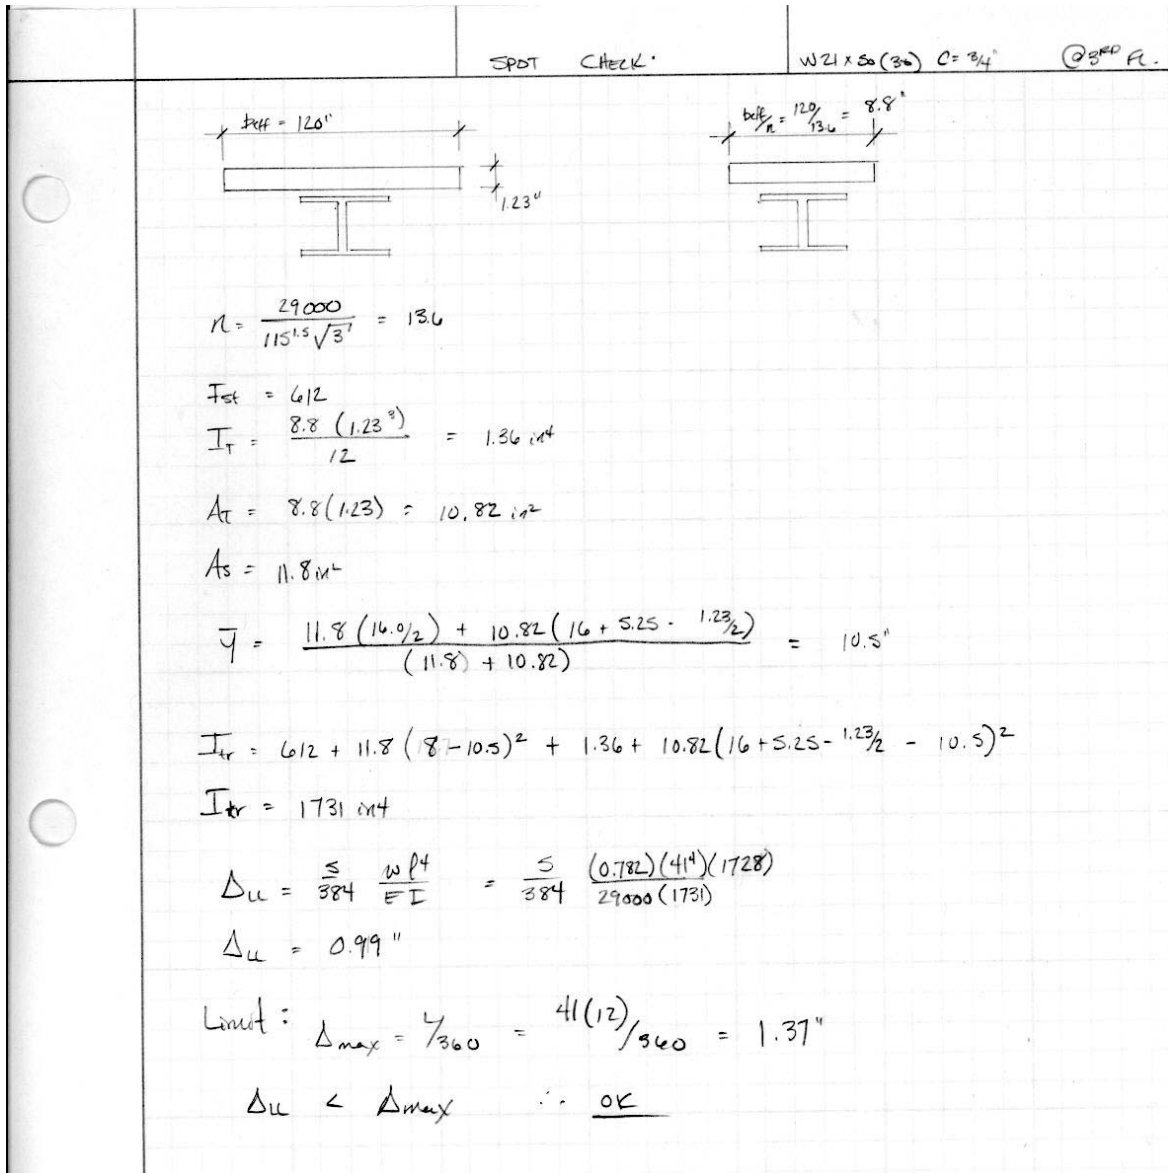 SPOT CHECK. W21 x 50 (36) C = 3/4" @ 3RD FL.
beff = 120" beff/n = 120/13.6 = 8.8"
1.23"
n = 29000 / 115^1.5 √3 = 13.6
Ist = 612
IT = 8.8 (1.23³) / 12 = 1.36 in4
AT = 8.8(1.23) = 10.82 in2
As = 11.8 in2
ȳ = 11.8 (16.0/2) + 10.82 (16 + 5.25 - 1.23/2) / (11.8) + 10.82) = 10.5"
Itr = 612 + 11.8 (8 - 10.5)² + 1.36 + 10.82 (16 + 5.25 - 1.23/2 - 10.5)²
Itr = 1731 in4
ΔLL = 5/384 wl⁴/EI = 5/384 (0.782)(41⁴)(1728) / 29000 (1731)
ΔLL = 0.99"
Limit: Δmax = L/360 = 41(12)/360 = 1.37"
ΔLL < Δmax ∴ OK